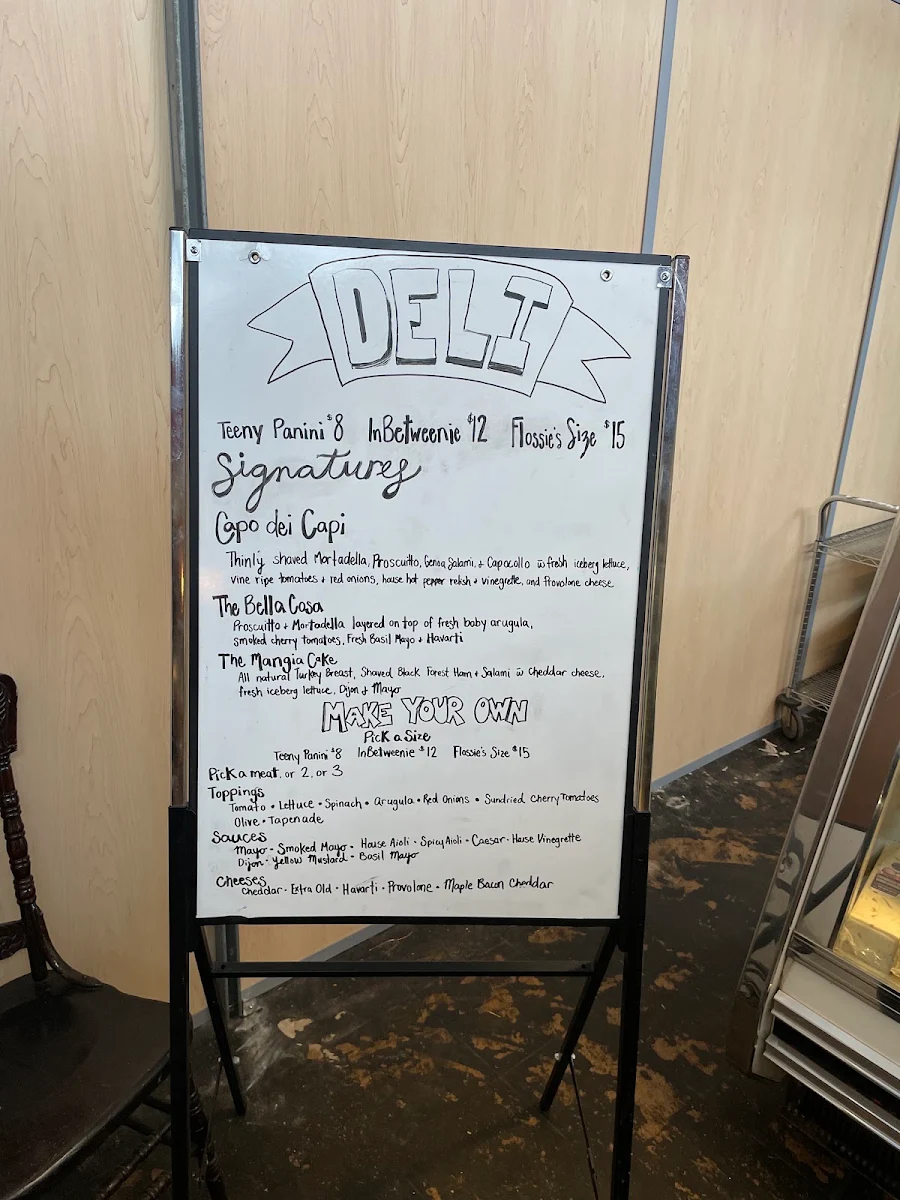 DELI
Teeny Panini $8 InBetweenie $12 Flossie's Size $15
Signatures
Capo dei Capi
Thinly shaved Mortadella, Proscuitto, Genoa Salami, + Capocollo w fresh iceberg lettuce,
vine ripe tomatoes + red onions, house hot pepper relish + vinegrette, and Provolone cheese
The Bella Casa
Proscuitto + Mortadella layered on top of fresh baby arugula,
smoked cherry tomatoes, Fresh Basil Mayo + Havarti
The Mangia Cake
All natural Turkey Breast, Shaved Black Forest Ham + Salami w Cheddar cheese,
fresh iceberg lettuce, Dijon + Mayo
MAKE YOUR OWN
Pick a Size
Teeny Panini $8 InBetweenie $12 Flossie's Size $15
Pick a meat, or 2, or 3
Toppings
Tomato • Lettuce • Spinach • Arugula • Red Onions • Sundried Cherry Tomatoes
Olive • Tapenade
Sauces
Mayo - Smoked Mayo - House Aioli - Spicy Aioli - Caesar - House Vinegrette
Dijon - Yellow Mustard - Basil Mayo
Cheeses
Cheddar - Extra Old - Havarti - Provolone • Maple Bacon Cheddar